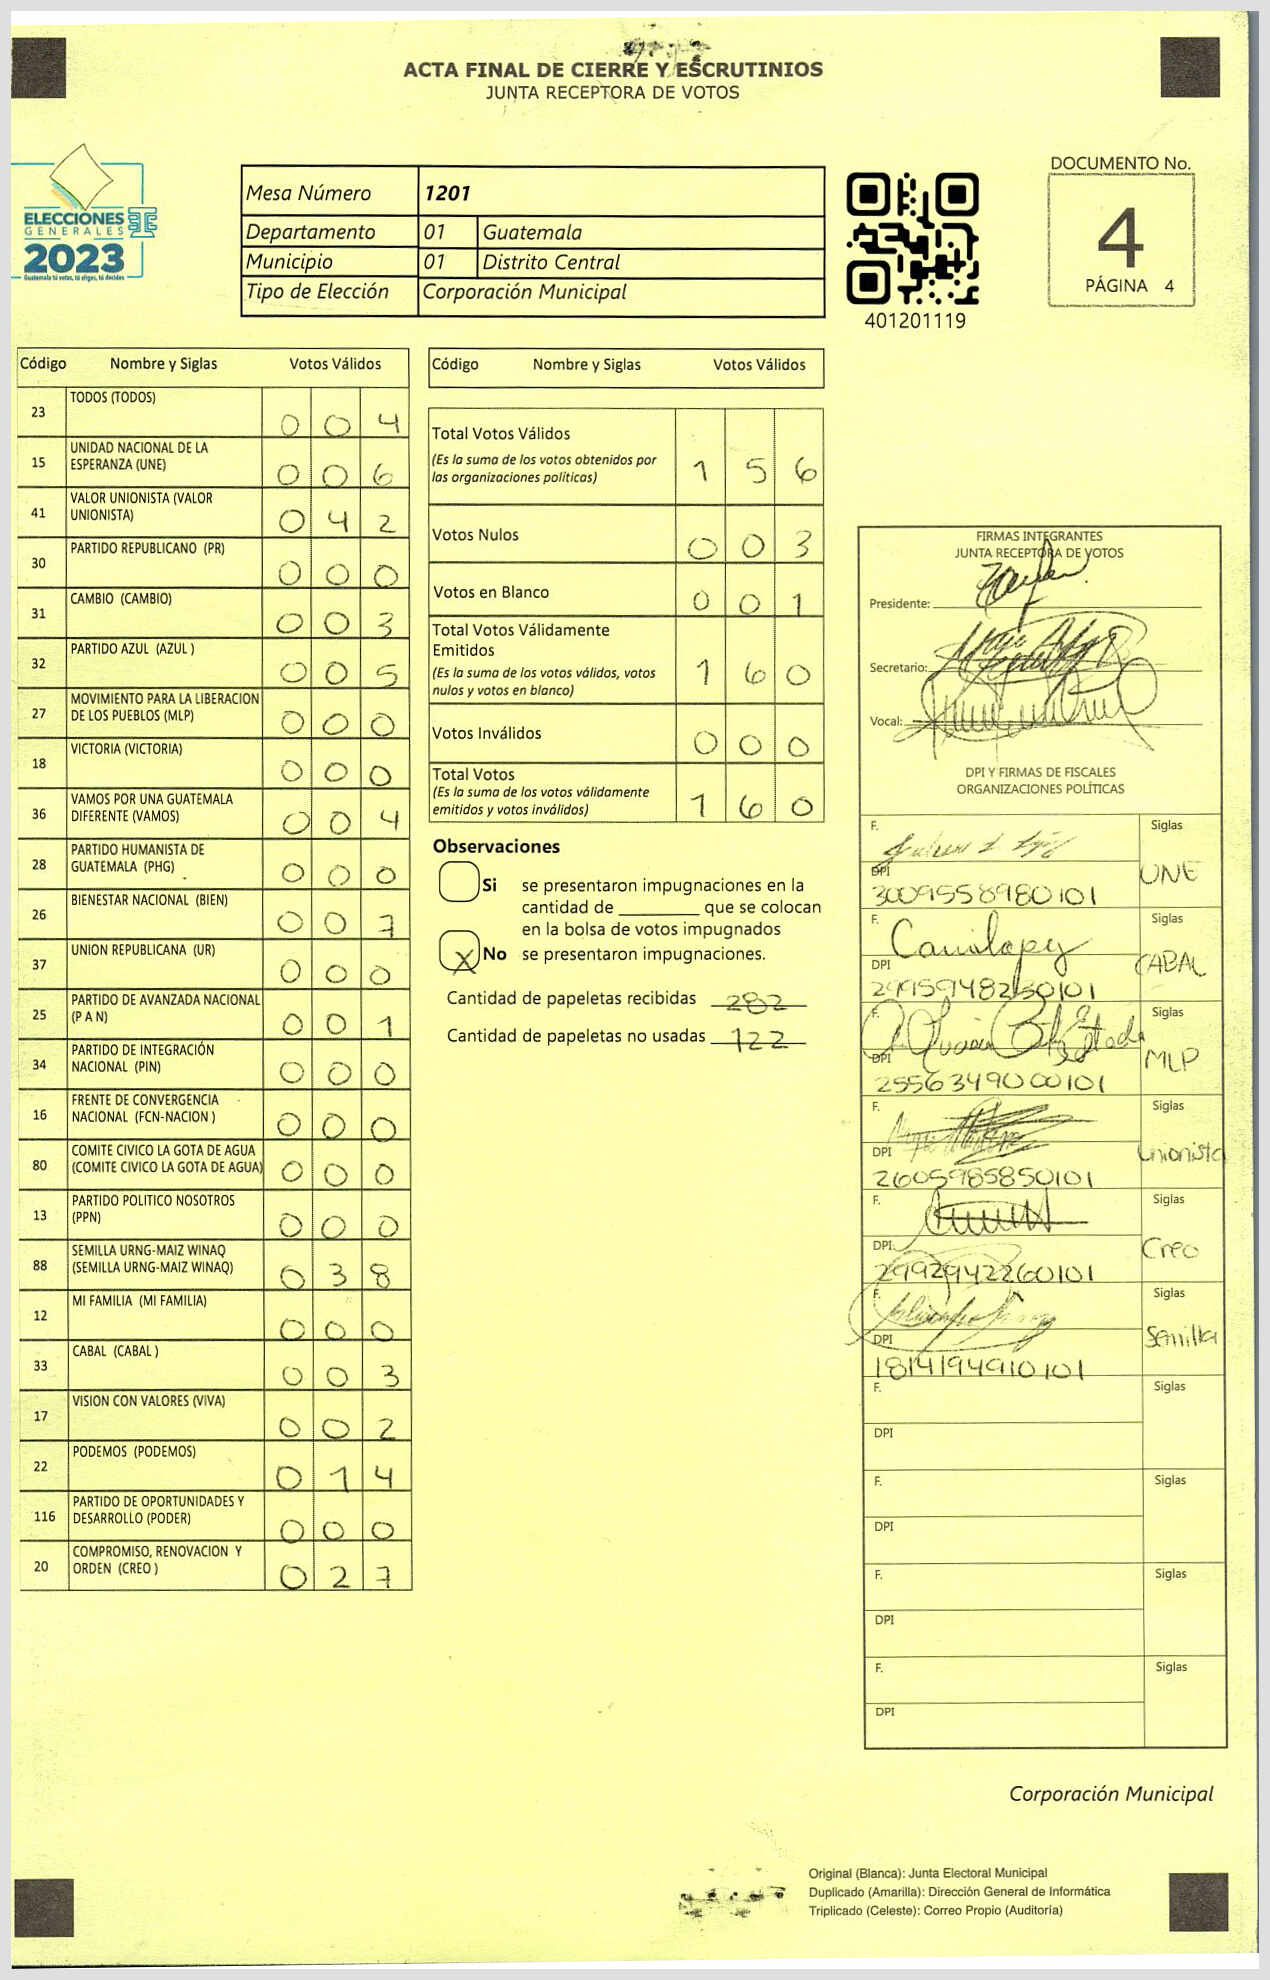 ACTA FINAL DE CIERRE Y ESCRUTINIOS
JUNTA RECEPTORA DE VOTOS
ELECCIONES
GENERALES
2023
Guatemala tú votas, tú eliges, tú decides
Mesa Número 1201
Departamento 01 Guatemala
Municipio 01 Distrito Central
Tipo de Elección Corporación Municipal
401201119
DOCUMENTO No.
4
PÁGINA 4
Código Nombre y Siglas Votos Válidos
23 TODOS (TODOS) 0 0 4
15 UNIDAD NACIONAL DE LA
ESPERANZA (UNE) 0 0 6
41 VALOR UNIONISTA (VALOR
UNIONISTA) 0 4 2
30 PARTIDO REPUBLICANO (PR) 0 0 0
31 CAMBIO (CAMBIO) 0 0 3
32 PARTIDO AZUL (AZUL ) 0 0 5
27 MOVIMIENTO PARA LA LIBERACION
DE LOS PUEBLOS (MLP) 0 0 0
18 VICTORIA (VICTORIA) 0 0 0
36 VAMOS POR UNA GUATEMALA
DIFERENTE (VAMOS) 0 0 4
28 PARTIDO HUMANISTA DE
GUATEMALA (PHG) 0 0 0
26 BIENESTAR NACIONAL (BIEN) 0 0 7
37 UNION REPUBLICANA (UR) 0 0 0
25 PARTIDO DE AVANZADA NACIONAL
(P A N) 0 0 1
34 PARTIDO DE INTEGRACIÓN
NACIONAL (PIN) 0 0 0
16 FRENTE DE CONVERGENCIA
NACIONAL (FCN-NACION ) 0 0 0
80 COMITE CIVICO LA GOTA DE AGUA
(COMITE CIVICO LA GOTA DE AGUA) 0 0 0
13 PARTIDO POLITICO NOSOTROS
(PPN) 0 0 0
88 SEMILLA URNG-MAIZ WINAQ
(SEMILLA URNG-MAIZ WINAQ) 0 3 8
12 MI FAMILIA (MI FAMILIA) 0 0 0
33 CABAL (CABAL ) 0 0 3
17 VISION CON VALORES (VIVA) 0 0 2
22 PODEMOS (PODEMOS) 0 1 4
116 PARTIDO DE OPORTUNIDADES Y
DESARROLLO (PODER) 0 0 0
20 COMPROMISO, RENOVACION Y
ORDEN (CREO ) 0 2 7
Código Nombre y Siglas Votos Válidos
Total Votos Válidos
(Es la suma de los votos obtenidos por
las organizaciones políticas) 1 5 6
Votos Nulos 0 0 3
Votos en Blanco 0 0 1
Total Votos Válidamente
Emitidos
(Es la suma de los votos válidos, votos
nulos y votos en blanco) 1 6 0
Votos Inválidos 0 0 0
Total Votos
(Es la suma de los votos válidamente
emitidos y votos inválidos) 1 6 0
Observaciones
Si se presentaron impugnaciones en la
cantidad de ________ que se colocan
en la bolsa de votos impugnados
X No se presentaron impugnaciones.
Cantidad de papeletas recibidas 282
Cantidad de papeletas no usadas 122
FIRMAS INTEGRANTES
JUNTA RECEPTORA DE VOTOS
Presidente:
Secretario:
Vocal:
DPI Y FIRMAS DE FISCALES
ORGANIZACIONES POLÍTICAS
F. Siglas
DPI UNE
3009558980101
F. Siglas
DPI CABAL
2995948250101
F. Siglas
DPI MLP
2556349000101
F. Siglas
DPI Unionista
2605985850101
F. Siglas
DPI Creo
2992942260101
F. Siglas
DPI Semilla
1814194910101
F. Siglas
DPI
F. Siglas
DPI
F. Siglas
DPI
F. Siglas
DPI
Corporación Municipal
Original (Blanca): Junta Electoral Municipal
Duplicado (Amarilla): Dirección General de Informática
Triplicado (Celeste): Correo Propio (Auditoría)